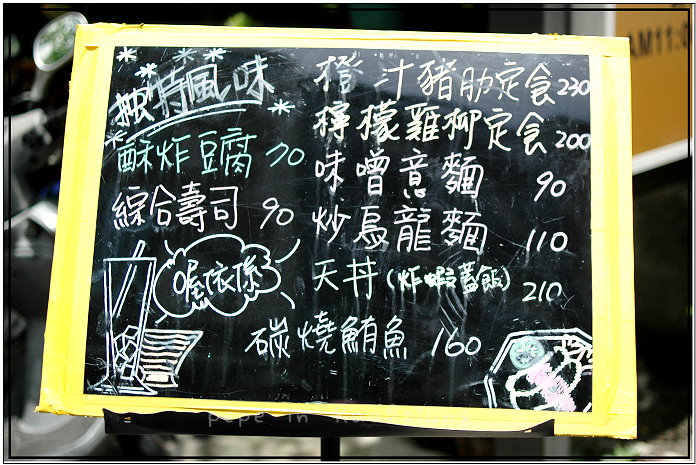 獨特風味
酥炸豆腐 70
綜合壽司 90
喔依係
橙汁豬肋定食 230
檸檬雞柳定食 200
味噌意麵 90
炒烏龍麵 110
天丼(炸蝦蓋飯) 210
碳燒鮪魚 160
AM11:0